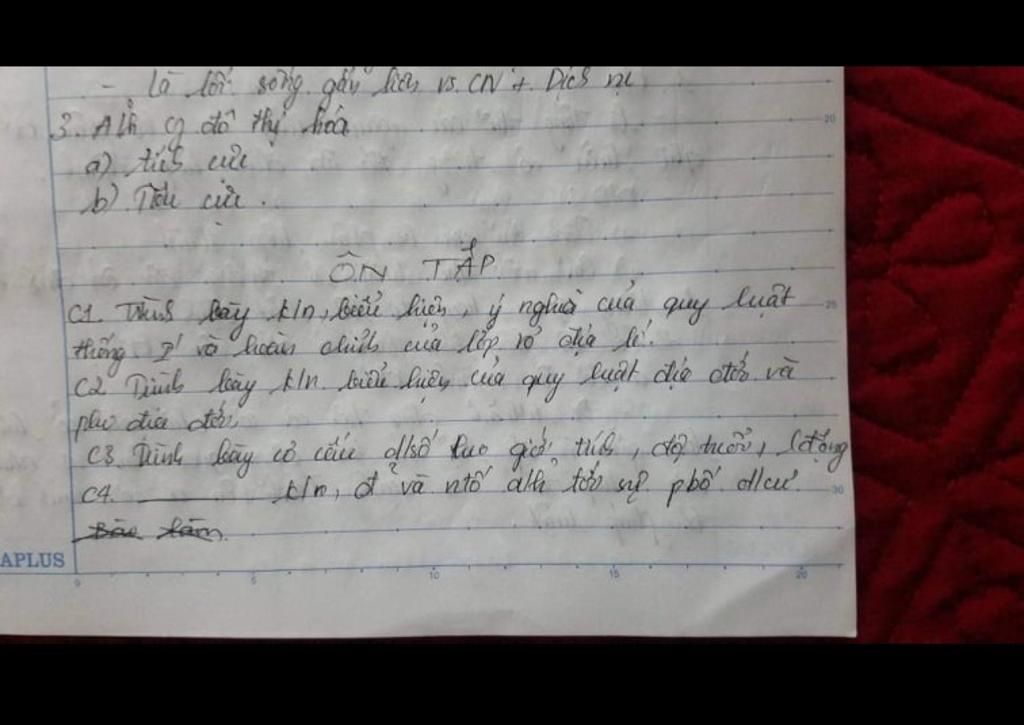 - là lối sống gắn liền vs CN + Dịch vụ
3. Ah đô thị hóa
a) tích cực
b) Tiêu cực.
ÔN TẬP
C1. Trình bày k/n, biểu hiện, ý nghĩa của quy luật
thống I' và hoàn chỉnh của lớp vỏ địa lí.
C2 Trình bày k/n. biểu hiện của quy luật địa đới và
phi địa đới.
C3 Trình bày cơ cấu dsố giới tính, độ tuổi, lđộng
C4. k/n, đ² và ntố ah tới sự pbố d/cư.
Bài làm.
APLUS
0 5 10 15 20
20
25
30